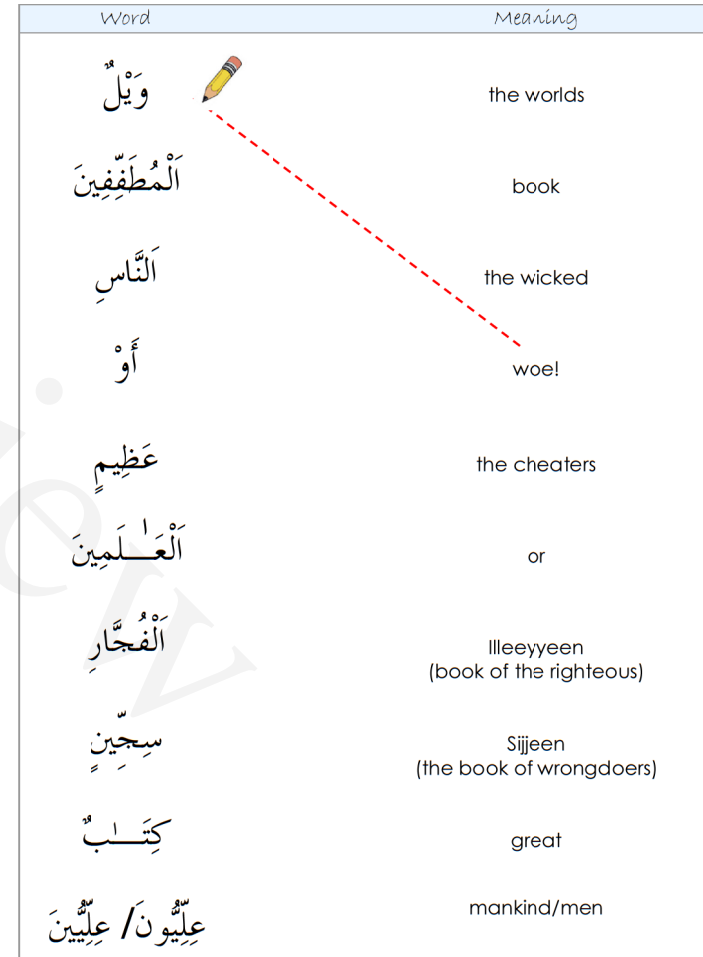 Word Meaning
وَيْلٌ the worlds
اَلْمُطَفِّفِينَ book
اَلنَّاسِ the wicked
أَوْ woe!
عَظِيمٍ the cheaters
اَلْعَـٰلَمِينَ or
اَلْفُجَّارِ Illeeyyeen
(book of the righteous)
سِجِّينٍ Sijjeen
(the book of wrongdoers)
كِتَـٰبٌ great
عِلِّيُّونَ/ عِلِّيِّينَ mankind/men